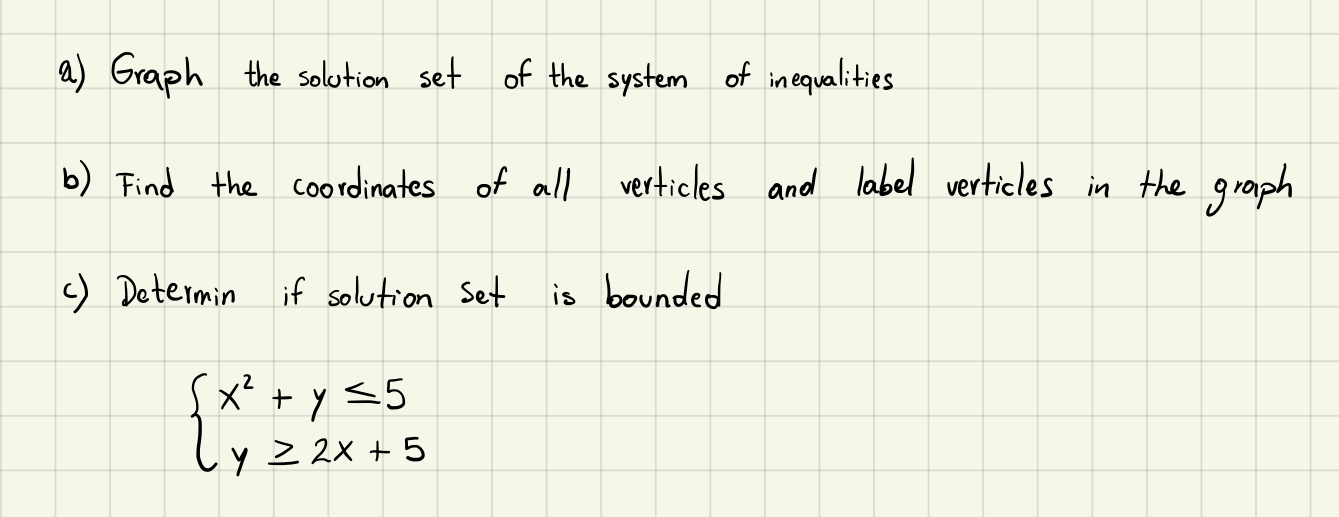 a) Graph the solution set of the system of inequalities
b) Find the coordinates of all verticles and label verticles in the graph
c) Determin if solution set is bounded
x² + y ≤ 5
y ≥ 2x + 5